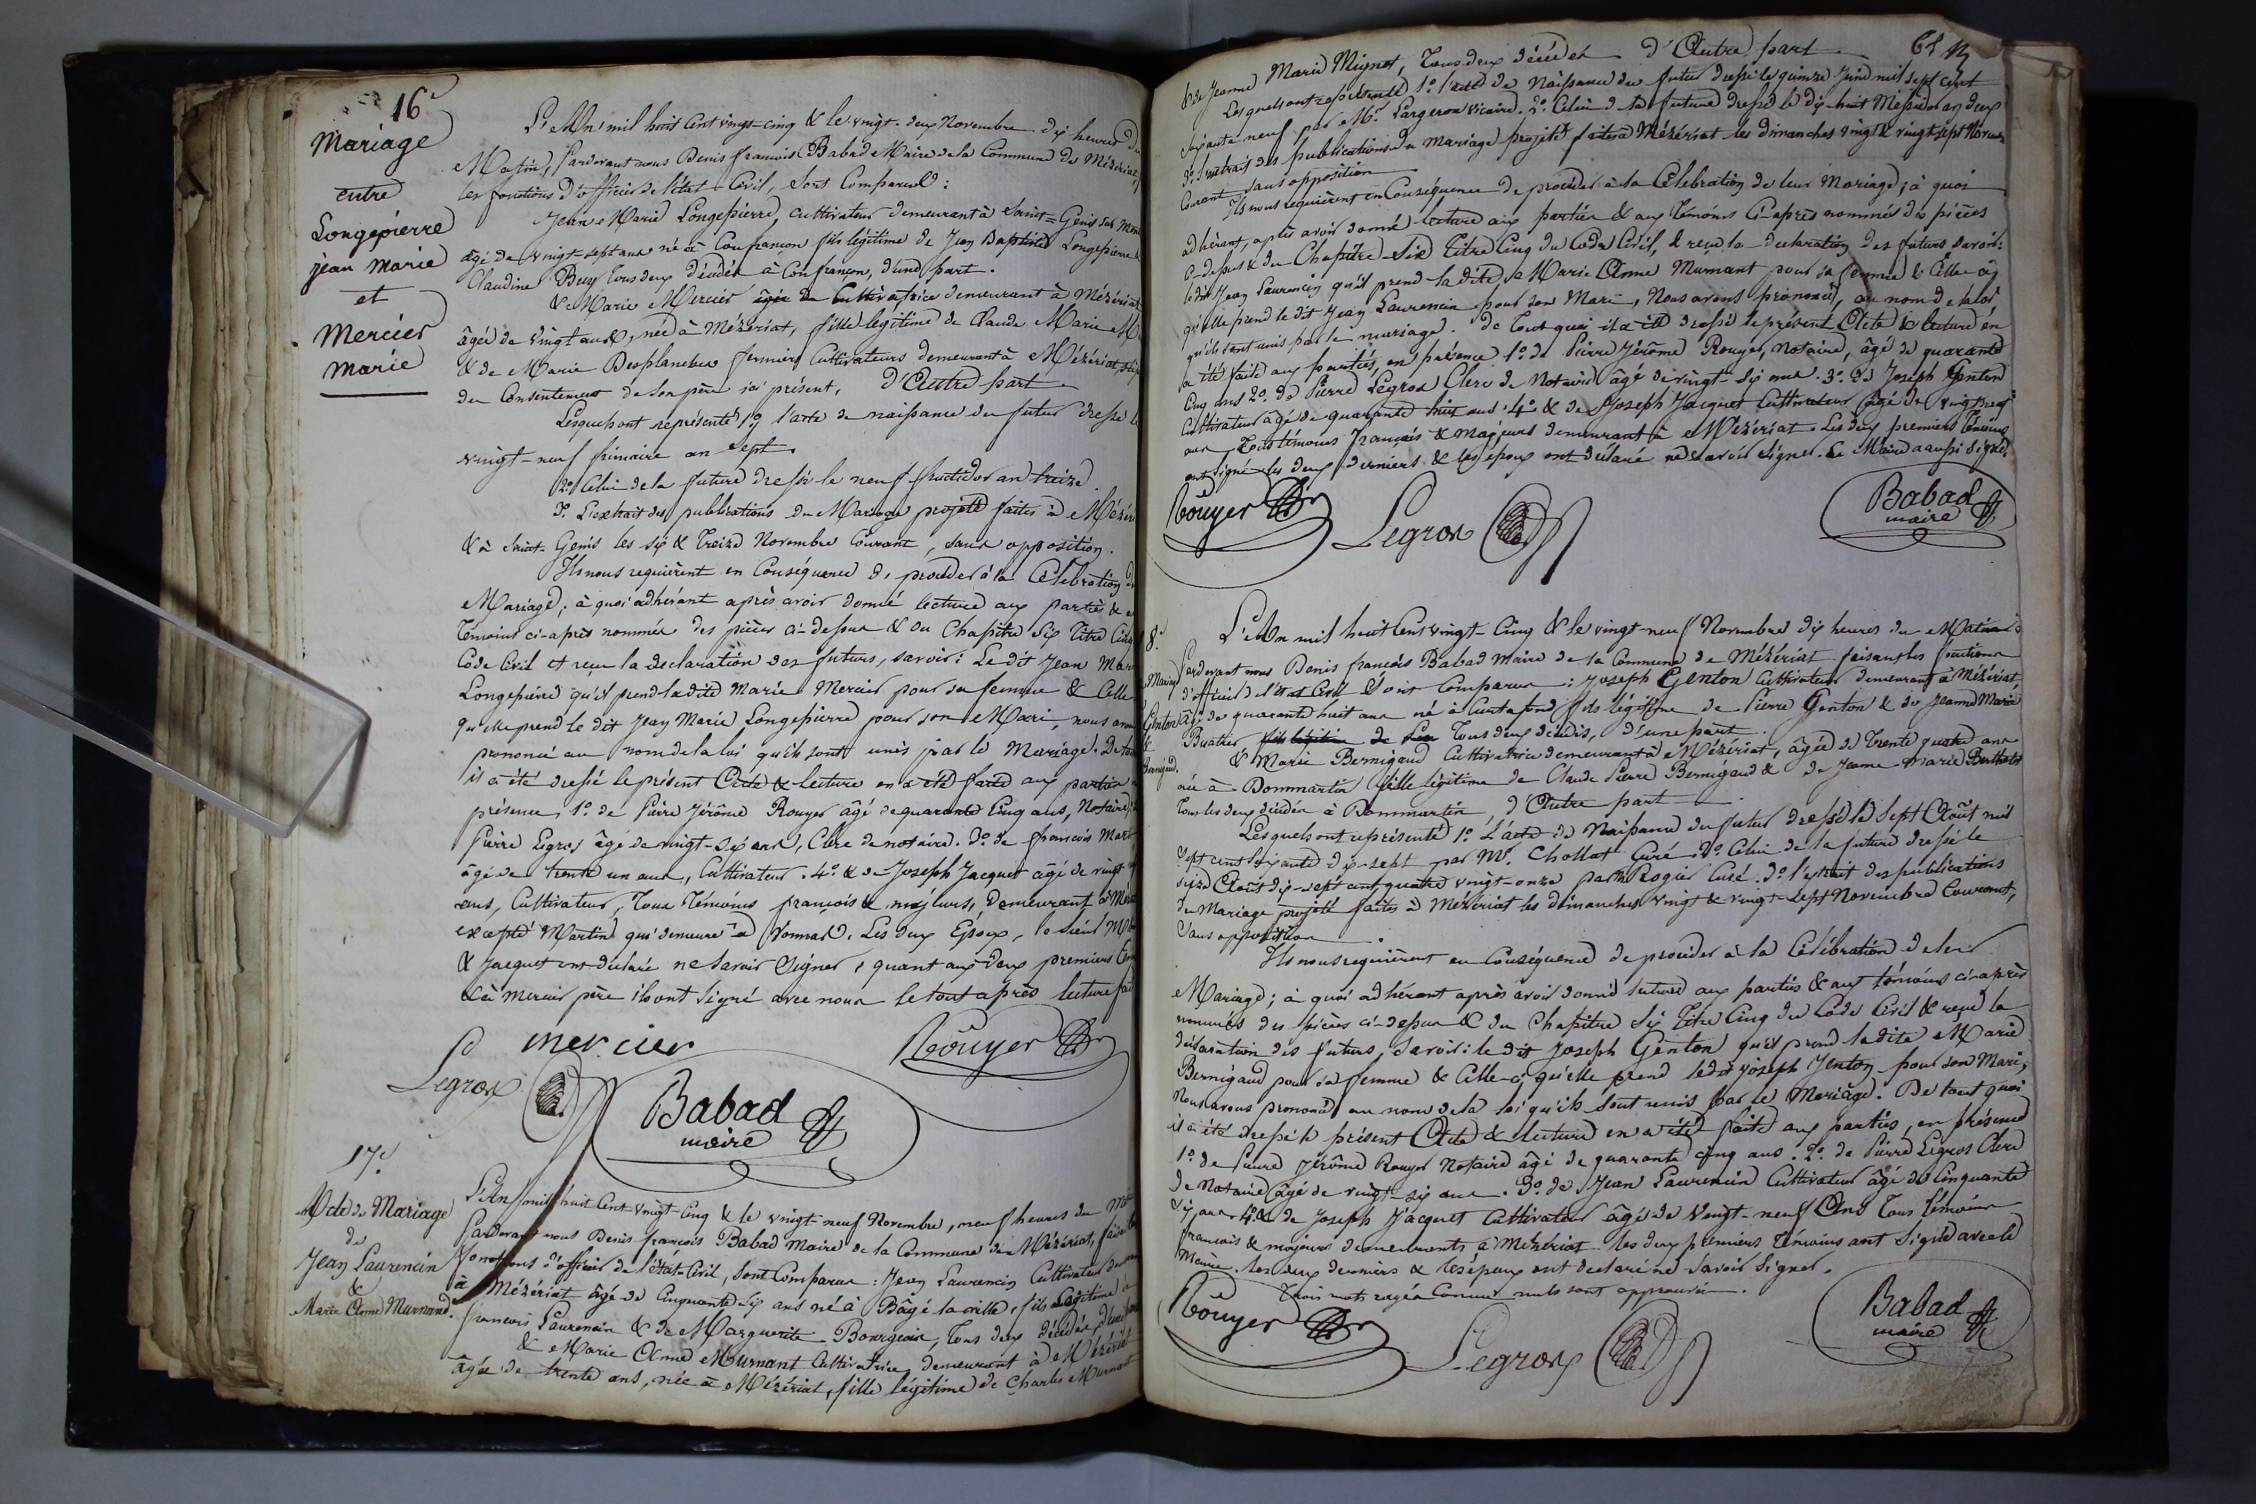 16e
Mariage
entre
Longepierre
jean Marie
et
Mercier
Marie
L'An mil huit Cent vingt-cinq & le vingt-deux Novembre dix heures du
Matin, Pardevant nous Denis françois Babad Maire de la Commune de Mézériat,
les fonctions d'officier de l'état-Civil, Sont Comparus :
Jean-Marie Longepierre, cultivateur demeurant à Saint-Genis sur Men
âgé de vingt-sept ans né à Confrançon fils légitime de Jean Baptiste Longepierre &
Claudine Buy tous deux décédés à Confrançon, d'une part.
& Marie Mercier âgée de Cultivatrice demeurant à Mézériat
âgée de vingt ans, née à Mézériat, fille légitime de Claude Marie M
& de Marie Desplanches fermiers Cultivateurs demeurant à Mézériat,
du Consentement de son père ici présent, d'Autre part
Lesquels ont représenté 1º l'acte de naissance du futur dressé le
vingt-neuf frimaire an sept.
2º Celui de la future dressé le neuf fructidor an treize.
3º L'extrait des publications du Mariage projetté faites à Mézéri
& à Saint-Genis les six & treize Novembre Courant, sans opposition.
Ils nous requièrent en Conséquence de procéder à la Célébration de
Mariage; à quoi adhérant après avoir donné lecture aux parties &
témoins ci-après nommés des pièces ci-dessus & du Chapitre six titre Cinq
Code Civil et reçu la déclaration des futurs, savoir: Le dit Jean Mar
Longepierre qu'il prend la dite Marie Mercier pour sa femme & Celle
qu'elle prend le dit Jean Marie Longepierre pour son Mari, nous avon
prononcé au nom de la loi qu'ils sont unis par le Mariage. De tou
il a été dressé le présent Acte & lecture en a été faite aux parties
présence, 1º de Pierre Jérôme Rouyer âgé de quarante Cinq ans, Notaire,
Pierre Legros âgé de vingt-six ans, Clerc de notaire. 3º de françois Mar
âgé de trente un ans, Cultivateur. 4º & de Joseph Jacquet âgé de vingt
ans, Cultivateur, Tous Témoins français & majeurs, demeurant à Méz
excepté Martin qui demeure à Vonnas. Les deux Epoux, le sieur M
& Jacquet ont déclaré ne savoir Signer, quant aux deux premiers tém
& à Mercier père ils ont signé avec nous le tout après lecture fai
mercier
Rouyer
Legros
Babad
maire
17e
Acte de Mariage
de
Jean Laurencin
&
Marie Anne Murnand.
L'An mil huit Cent vingt-cinq & le vingt-neuf Novembre, neuf heures du M
Pardevant nous Denis françois Babad Maire de la Commune de Mézériat, faisa
fonctions d'officier de l'état-Civil, Sont Comparus : Jean Laurencin Cultivateur
à Mézériat âgé de Cinquante six ans né à Bâgé la ville, fils légitime
françois Laurencin & de Marguerite Bourgeois, tous deux décédés, d'une
& Marie Anne Murnant Cultivatrice, demeurant à Mézériat
âgée de trente ans, née à Mézériat, fille légitime de Charles Murnant
& de Jeanne Marie Mignot, Tous deux décédés d'Autre part
Lesquels ont représenté 1º l'acte de Naissance du futur dressé le quinze Juin mil sept cent
soixante neuf par Mr. Largeron vicaire. 2º Celui de la future dressé le dix huit Messidor an deux
3º l'extrait des publications du Mariage projetté faites à Mézériat les dimanches vingt & vingt-sept Novem
Courant sans opposition
Ils nous requièrent en Conséquence de procéder à la Célébration de leur Mariage; à quoi
adhérant, après avoir donné lecture aux parties & aux témoins Ci-après nommés des pièces
Ci-dessus & du Chapitre Six Titre Cinq du Code Civil, & reçu la déclaration des futurs savoir:
ledit Jean Laurencin qu'il prend la dite Marie Anne Murnant pour sa femme & Celle-ci
qu'elle prend le dit Jean Laurencin pour son Mari, Nous avons prononcé, au nom de la loi
qu'ils sont unis par le mariage. De tout quoi il a été dressé le présent Acte & lecture en
a été faite aux parties, en présence 1º de Pierre Jérôme Rouyer, notaire, âgé de quarante
Cinq ans 2º. de Pierre Legros Clerc de Notaire âgé de vingt-six ans. 3º. de Joseph Genton
Cultivateur âgé de quarante huit ans. 4º & de Joseph Jacquet Cultivateur âgé de vingt neuf
ans Tous témoins français & majeurs demeurant à Mézériat. Les deux premiers témoins
ont signé les deux derniers & les époux ont déclaré ne savoir signer. Le Maire a aussi Signé.
Rouyer
Legros
Babad
maire
8e
Mariage
Genton
&
Bernigaud.
L'An mil huit Cent vingt-Cinq & le vingt-neuf Novembre dix heures du Matin
Pardevant nous Denis françois Babad Maire de la Commune de Mézériat faisant les fonctions
d'officier de l'état Civil Sont Comparus : Joseph Genton Cultivateur demeurant à Mézériat,
âgé de quarante huit ans né à Curtafond fils légitime de Pierre Genton & de Jeanne Marie
Buathier, fils légitime de Tous deux décédés, d'une part
& Marie Bernigaud Cultivatrice demeurant à Mézériat, âgée de Trente quatre ans
née à Dommartin fille légitime de Claude Pierre Bernigaud & de Jeanne Marie Berthelot
Tous les deux décédés à Dommartin, d'Autre part
Lesquels ont représenté 1º. L'acte de Naissance du futur dressé le Sept Août mil
sept cent soixante dix-sept par Mr. Chollat Curé. 2º. Celui de la future dressé le
seize Août dix-sept cent quatre vingt-onze par Mr Rogier Curé. 3º. l'extrait des publications
du Mariage projetté faites à Mézériat les dimanches vingt & vingt-sept Novembre Courant,
Sans opposition
Ils nous requièrent en Conséquence de procéder à la Célébration de leur
Mariage; à quoi adhérant après avoir donné lecture aux parties & aux témoins ci-après
nommés des pièces ci-dessus & du Chapitre Six titre Cinq du Code Civil & reçu la
déclaration des futurs, Savoir: le dit Joseph Genton qu'il prend la dite Marie
Bernigaud pour sa femme & Celle-ci qu'elle prend ledit Joseph Genton pour son Mari,
Nous avons prononcé au nom de la loi qu'ils Sont unis par le Mariage. De tout quoi
il a été dressé le présent Acte & lecture en a été faite aux parties, en présence
1º. de Pierre Jérôme Rouyer Notaire âgé de quarante cinq ans. 2º. de Pierre Legros Clerc
de Notaire âgé de vingt-six ans. 3º. de Jean Laurencin Cultivateur âgé de Cinquante
Six ans 4º. & de Joseph Jacquet Cultivateur âgé de Vingt-neuf Ans Tous témoins
français & majeurs demeurants à Mézériat. les deux premiers témoins ont signé avec le
Maire. les deux derniers & les époux ont déclaré ne Savoir Signer.
Trois mots rayés Comme nuls sont approuvés.
Rouyer
Legros
Babad
maire